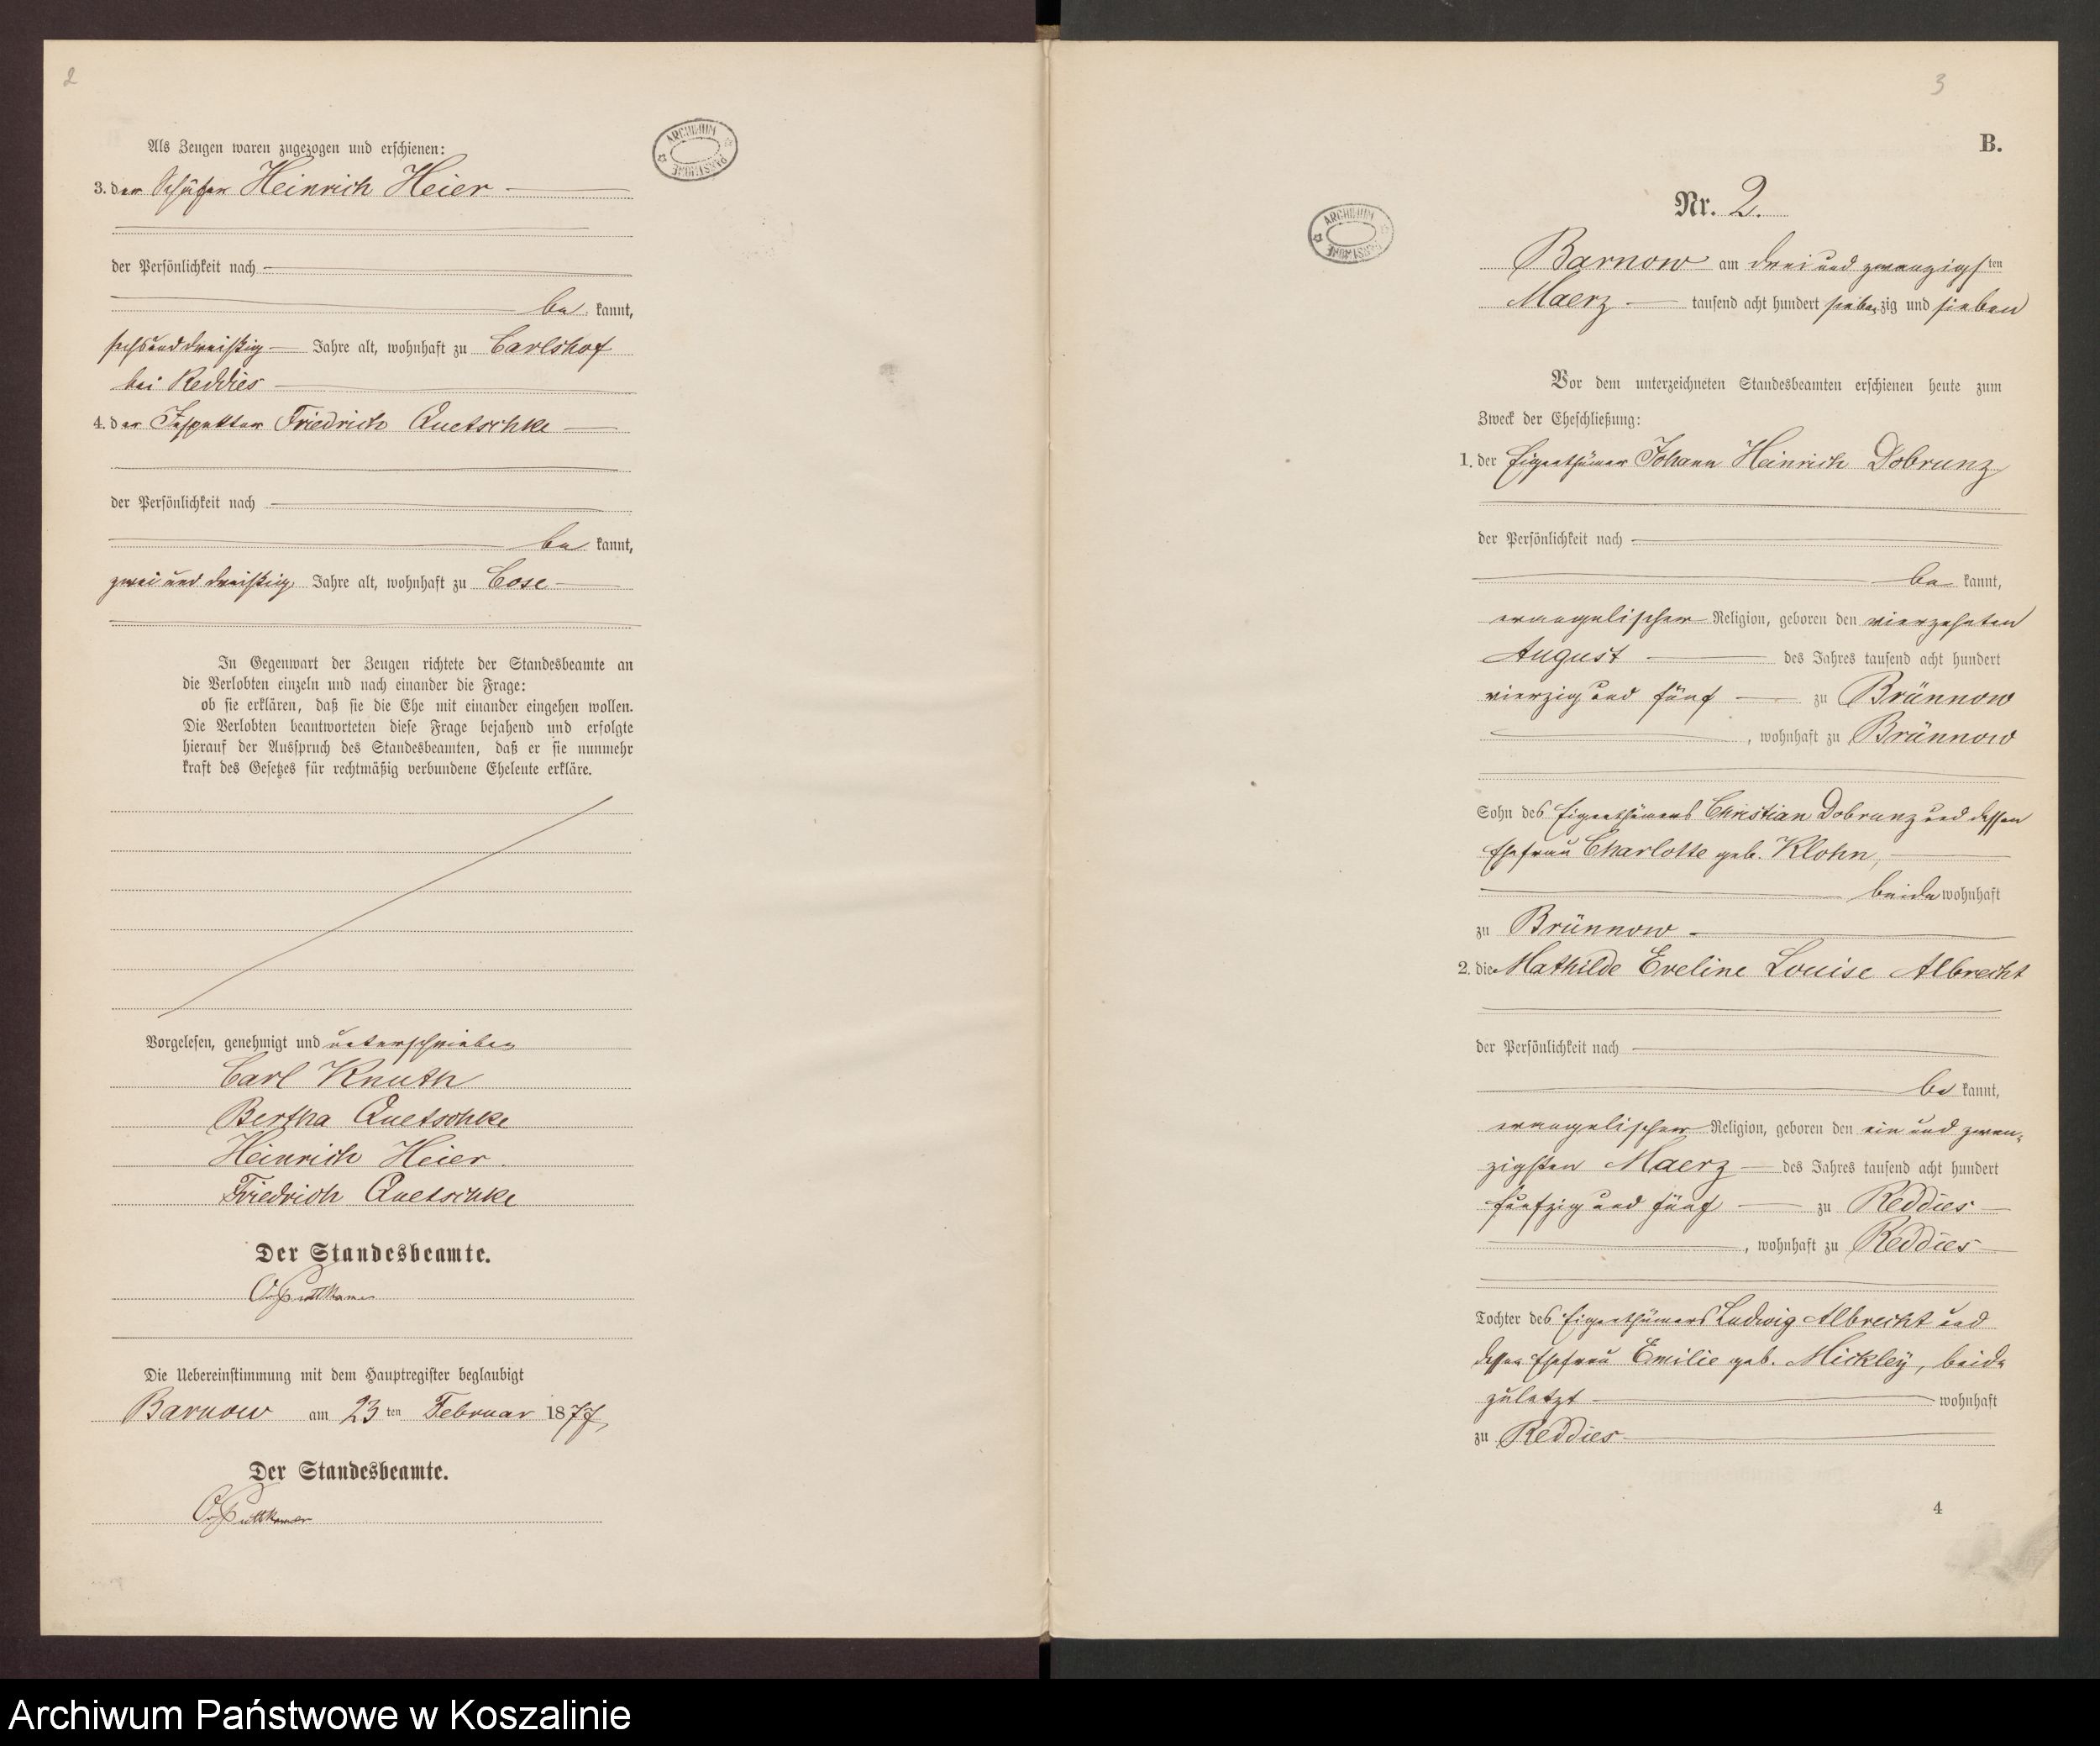 2
Als Zeugen waren zugezogen und erschienen:
3. der Schäfer Heinrich Heier
der Persönlichkeit nach
be kannt,
sechsunddreißig Jahre alt, wohnhaft zu Carlshof
bei Reddies
4. der Inspektor Friedrich Quetschke
der Persönlichkeit nach
be kannt,
zwei und dreißig Jahre alt, wohnhaft zu Cose
In Gegenwart der Zeugen richtete der Standesbeamte an
die Verlobten einzeln und nach einander die Frage:
ob sie erklären, daß sie die Ehe mit einander eingehen wollen.
Die Verlobten beantworteten diese Frage bejahend und erfolgte
hierauf der Ausspruch des Standesbeamten, daß er sie nunmehr
kraft des Gesetzes für rechtmäßig verbundene Eheleute erkläre.
Vorgelesen, genehmigt und unterschrieben
Carl Knuth
Bertha Quetschke
Heinrich Heier.
Friedrich Quetschke
Der Standesbeamte.
Puttkamer
Die Uebereinstimmung mit dem Hauptregister beglaubigt
Barnow am 23 ten Februar 1877,
Der Standesbeamte.
Puttkamer
ARCHIWUM PAŃSTWOWE
3
B.
ARCHIWUM PAŃSTWOWE
Nr. 2.
Barnow am drei und zwanzigsten
Maerz tausend acht hundert siebenzig und sieben
Vor dem unterzeichneten Standesbeamten erschienen heute zum
Zweck der Eheschließung:
1. der Eigenthümer Johann Heinrich Dobrunz
der Persönlichkeit nach
be kannt,
evangelischer Religion, geboren den vierzehnten
August des Jahres tausend acht hundert
vierzig und fünf zu Brünnow
, wohnhaft zu Brünnow
Sohn des Eigenthümers Christian Dobrunz und dessen
Ehefrau Charlotte geb. Klohn,
beide wohnhaft
zu Brünnow
2. die Mathilde Eveline Louise Albrecht
der Persönlichkeit nach
be kannt,
evangelischer Religion, geboren den ein und zwan-
zigsten Maerz des Jahres tausend acht hundert
fünfzig und fünf zu Reddies
, wohnhaft zu Reddies
Tochter des Eigenthümers Ludwig Albrecht und
dessen Ehefrau Emilie geb. Mickley, beide
zuletzt wohnhaft
zu Reddies
4
Archiwum Państwowe w Koszalinie